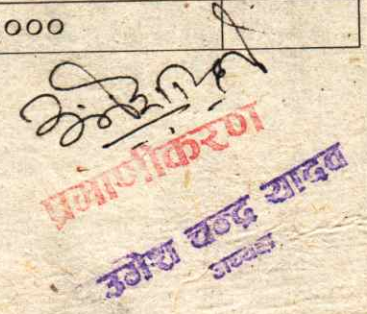 ०००
प्रमाणीकरण
उमेश चन्द्र यादव
अध्यक्ष